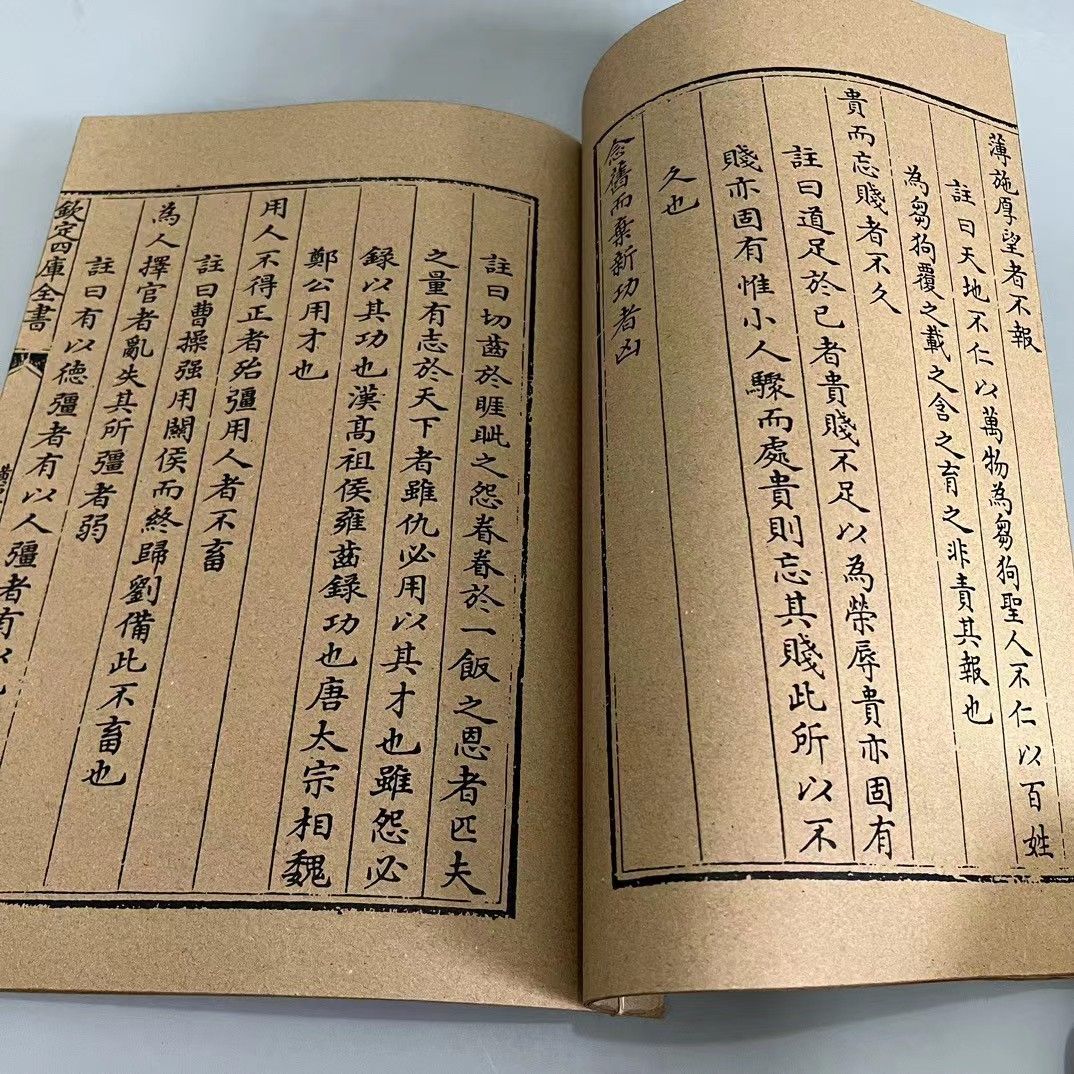 薄施厚望者不報
註曰天地不仁以萬物為芻狗聖人不仁以百姓
為芻狗覆之載之含之育之非責其報也
貴而忘賤者不久
註曰道足於已者貴賤不足以為榮辱貴亦固有
賤亦固有惟小人驟而處貴則忘其賤此所以不
久也
念舊而棄新功者凶
註曰切齒於睚眦之怨眷眷於一飯之恩者匹夫
之量有志於天下者雖仇必用以其才也雖怨必
録以其功也漢髙祖侯雍齒録功也唐太宗相魏
鄭公用才也
用人不得正者殆彊用人者不畜
註曰曹操强用關侯而終歸劉備此不畜也
為人擇官者亂失其所彊者弱
註曰有以德彊者有以人彊者有以
欽定四庫全書